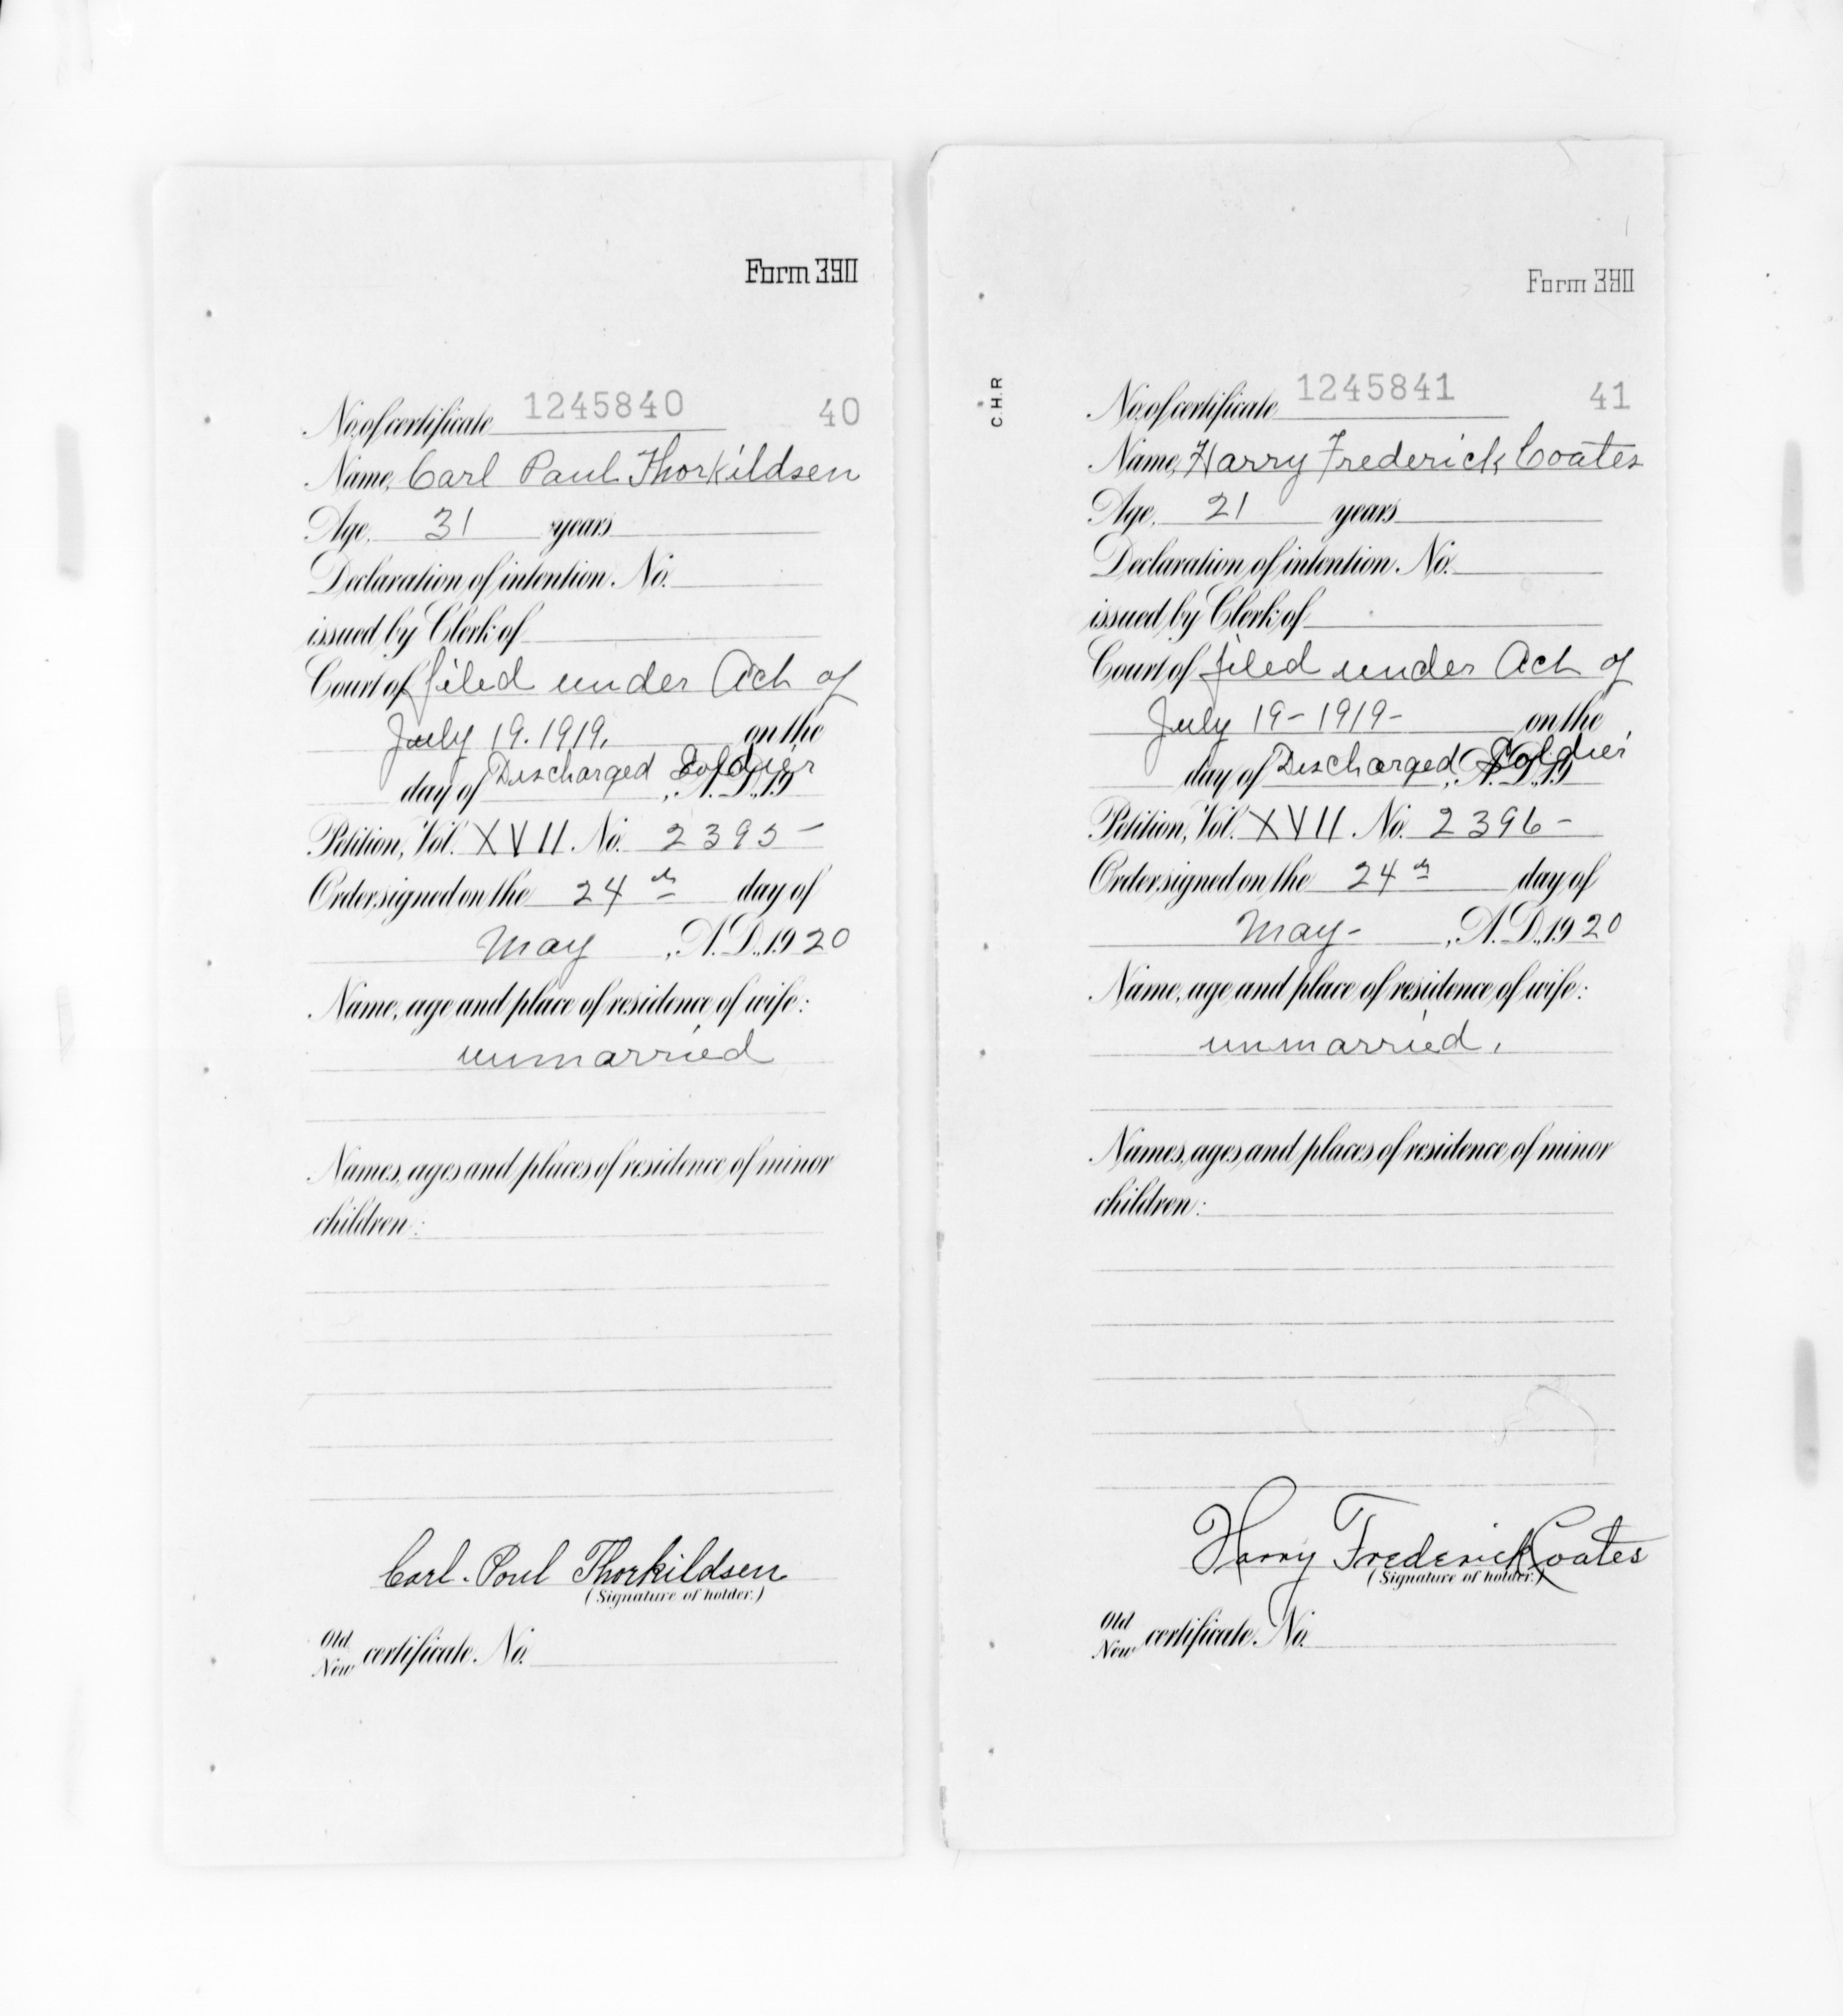 Form 390
No. of certificate 1245840 40
Name, Carl Paul Thorkildsen
Age, 31 years
Declaration of intention, No.
issued by Clerk of
Court of filed under Act of
July 19. 1919. on the
day of Discharged Soldier, A.D., 19
Petition, Vol. XVII. No. 2395 -
Order signed on the 24th day of
May, A.D., 1920
Name, age and place of residence of wife:
unmarried
Names, ages and places of residence of minor
children:
Carl. Poul Thorkildsen
(Signature of holder.)
Old
New certificate, No.
Form 390
C.H.R
No. of certificate 1245841 41
Name, Harry Frederick Coates
Age, 21 years
Declaration of intention, No.
issued by Clerk of
Court of filed under Act of
July 19 - 1919 - on the
day of Discharged Soldier, A.D., 19
Petition, Vol. XVII. No. 2396 -
Order signed on the 24th day of
May -, A.D., 1920
Name, age and place of residence of wife:
unmarried.
Names, ages and places of residence of minor
children:
Harry Frederick Coates
(Signature of holder.)
Old
New certificate, No.